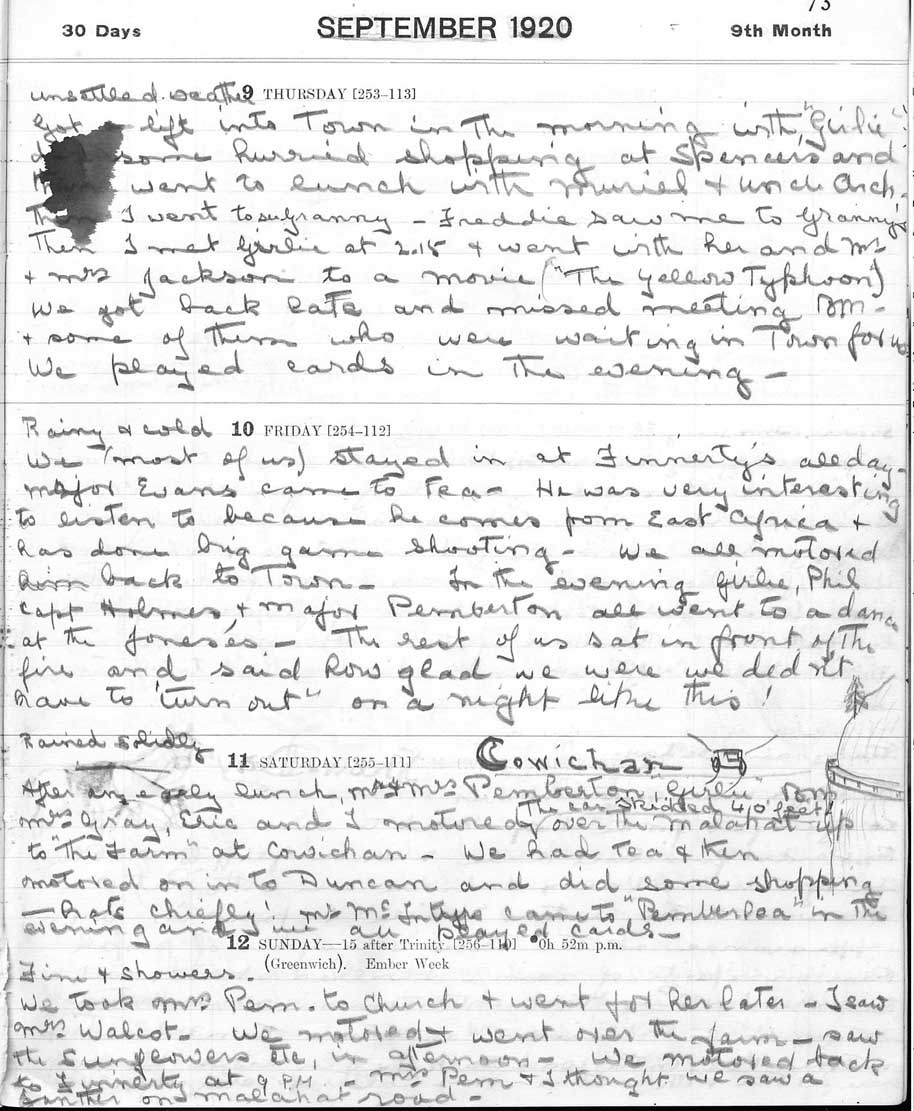 73
30 Days SEPTEMBER 1920 9th Month
unsettled weather 9 THURSDAY [253-113]
Got a lift into Town in the morning with "Girlie"
some hurried shopping at Spencers and
then went to lunch with Muriel & Uncle Arch.
Then I went to see Granny - Freddie saw me to Granny's
Then I met Girlie at 2.15 & went with her and Mr
& Mrs Jackson to a movie ("The Yellow Typhoon)
We got back late and missed meeting BM -
& some of them who were waiting in Town for us
We played cards in the evening -
Rainy & cold 10 FRIDAY [254-112]
We (most of us) stayed in at Finnerty's all day -
Major Evans came to Tea - He was very interesting
to listen to because he comes from East Africa &
has done big game shooting - We all motored
him back to Town - In the evening Girlie, Phil
Capt Holmes & Major Pemberton all went to a dance
at the Joneses. - The rest of us sat in front of the
fire and said how glad we were we didn't
have to "turn out" on a night like this!
Rained solidly 11 SATURDAY [255-111] Cowichan
After an early lunch, Mr & Mrs Pemberton, "Girlie" BM,
The car skidded 40 feet!
Mrs Gray, Eric and I motored over the Malahat up
to "The Farm" at Cowichan - We had Tea & then
motored on in to Duncan and did some shopping
- hats chiefly! Mr McIntyre came to "Pemberlea" in the
evening and we all played cards -
12 SUNDAY—15 after Trinity [256-110] 0h 52m p.m.
(Greenwich). Ember Week
Fine & showers.
We took Mrs Pem. to Church & went for her later - I saw
Mrs Walcot - We motored & went over the farm - saw
the Sunflowers etc, in afternoon - We motored back
to Finnerty at 9 P.M. - Mrs Pem & I thought we saw a
panther on Malahat road -